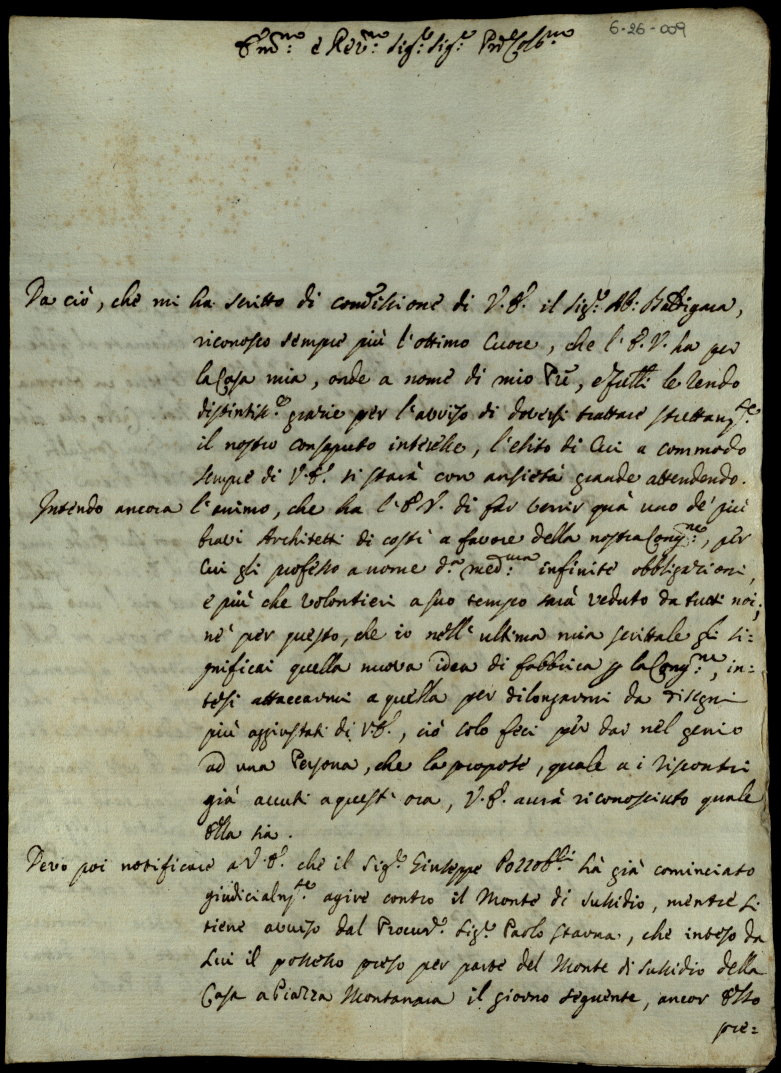 6-26-009
Em.mo e Rev.mo Sig.r Sig.r Pne Col.mo
Da ciò, che mi ha scritto di comissione di V.E. il Sig.r Ab: Buttigara,
riconosco sempre più l'ottimo Cuore, che l'E.V. ha per
la Casa mia, onde a nome di mio Pre, e Fratelli le rendo
distintis.e grazie per l'avviso di doversi trattare strettam.te
il nostro consaputo interesse, l'esito di cui a commodo
sempre di V.E. si starà con ansietà grande attendendo.
Intendo ancora l'animo, che ha l'E.V. di far venir quà uno de' più
bravi Architetti di costì a favore della nostra Cong.ne, per
cui gli professo a nome d.a med.ma infinite obbligazioni,
e più che volontieri a suo tempo sarà veduto da tutti noi;
nè per questo, che io nell'ultima mia scrittale gli si=
gnificai quella nuova idea di fabbrica p la Cong.ne, in=
tesi attaccarmi a questa per dilongarmi da disegni
più aggiustati di V.E., ciò solo feci per dar nel genio
ad una Persona, che la propose, quale a i riscontri
già avuti a quest'ora, V.E. avrà riconosciuto quale
ella sia.
Devo poi notificare a V.E. che il Sig.r Giuseppe Pozzob.lli hà già cominciato
giudicialm.te agire contro il Monte di Sussidio, mentre si
tiene avviso dal Procur.e Sig.r Paolo Stavna, che inteso da
Lui il possesso preso per parte del Monte di Sussidio della
Casa a Piazza Montanara il giorno seguente, ancor esso
pre=